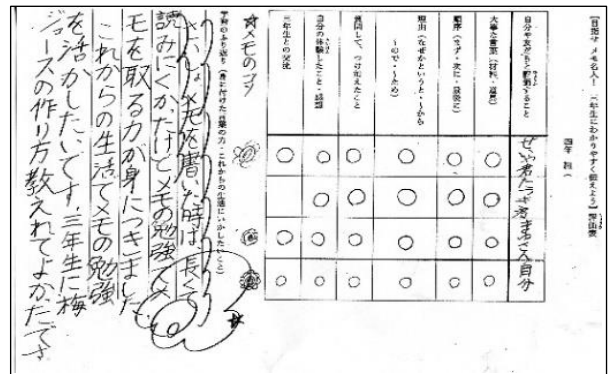 【目指せ メモ名人! 三年生にわかりやすく伝えよう】評価表
四年 組(
自分や友だちと評価すること
大事な言葉(材料、道具)
順序(まず・次に・最後に)
理由(なぜかというと・~から
~ので・~ため)
質問して、つけ加えたこと
自分の体験したこと・感想
三年生との交流
自分
★メモのコツ
学習のふり返り(身に付けた言葉の力・これからの生活にいかしたいこと)
さいしょメモを書いた時は、長くて
読みにくかたけどメモの勉強でメ
モを取る力が身につきました。
これからの生活でメモの勉強
を活かしたいです。三年生に梅
ジュースの作り方教えれてよかったです